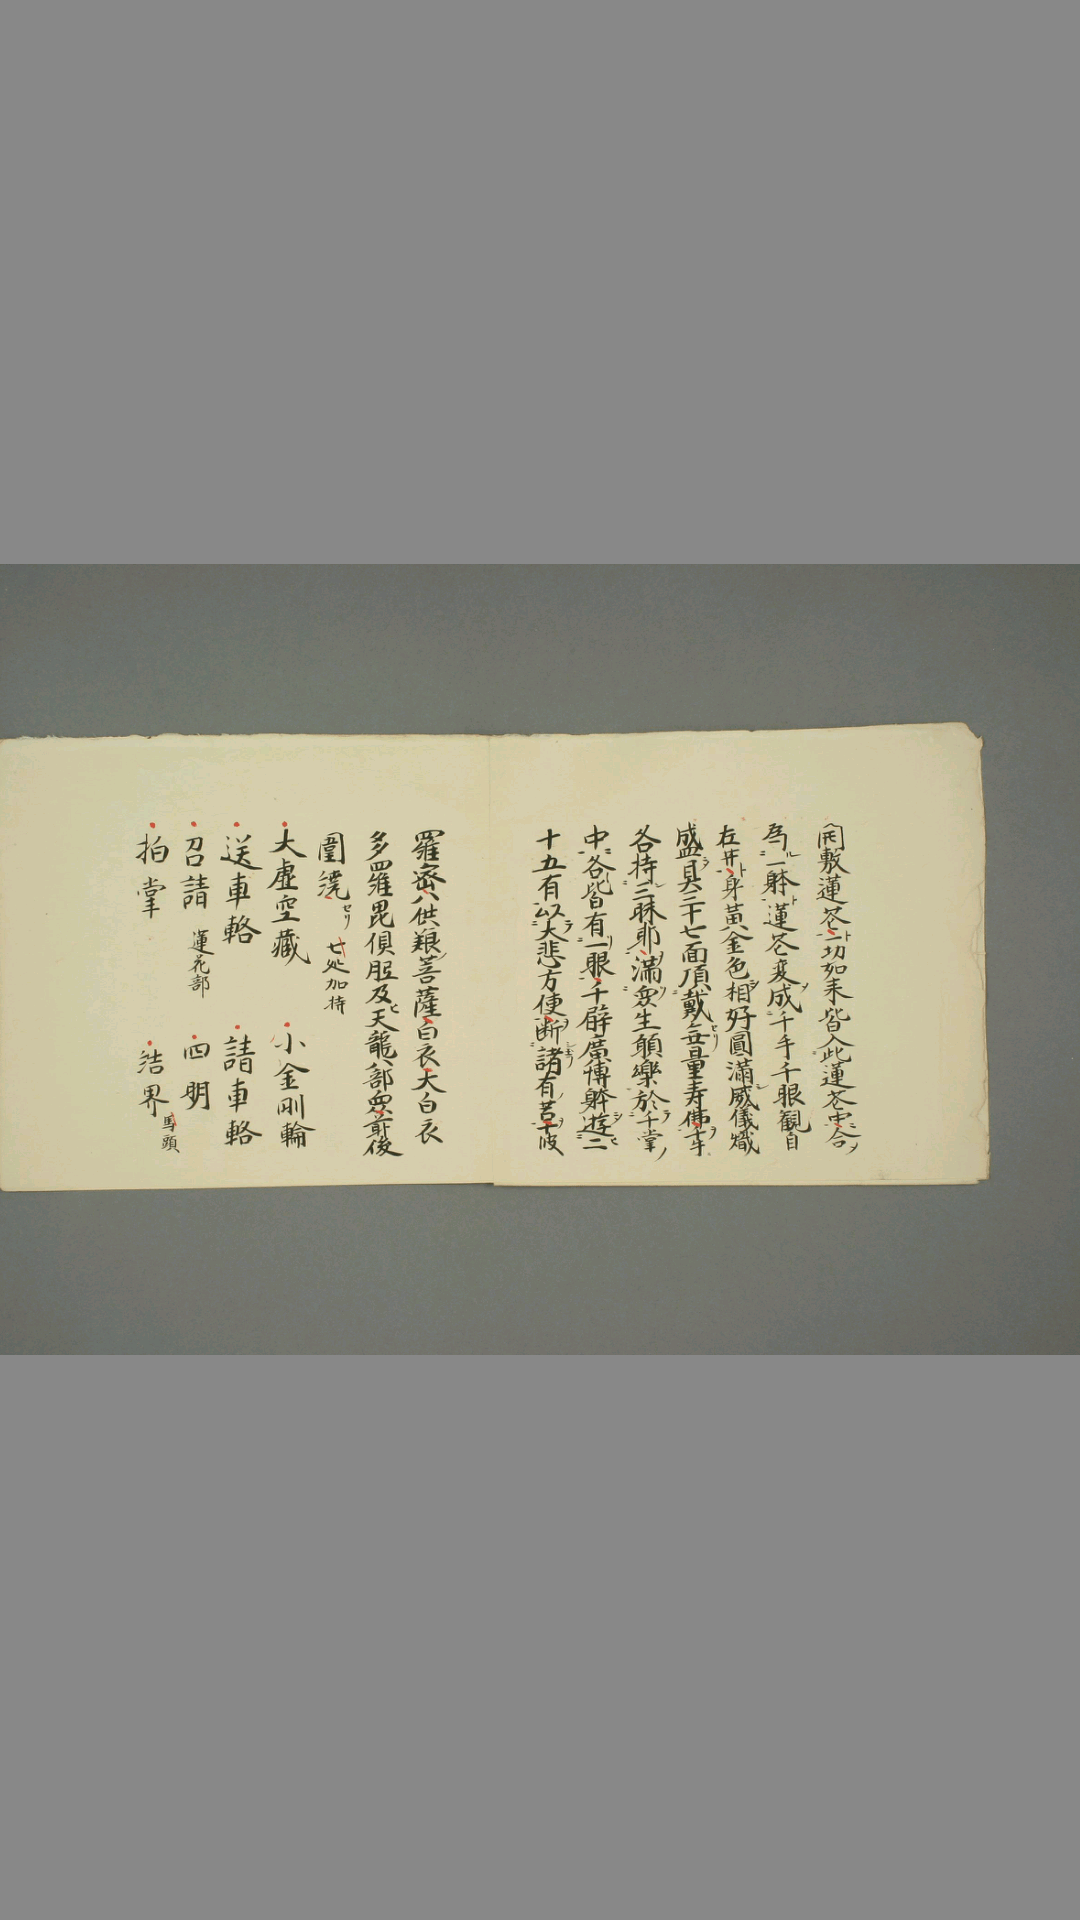 開敷蓮花一切如来皆入此蓮花中合
為一躰蓮花変成千手千眼観自
在井身黃金色相好圓滿威儀熾
盛具三十七面頂戴無量寿佛千手
各持三昧耶滿衆生願樂於千掌
中各皆有一眼千臂廣博躰遊二
十五有以大悲方便断諸有苦十波
羅蜜八供養菩薩白衣大白衣
多羅毘倶胝及天龍八部衆前後
圍繞セリ 七処加持
大虛空藏 小金剛輪
送車輅 請車輅
召請 蓮花部 四明
拍掌 結界 馬頭